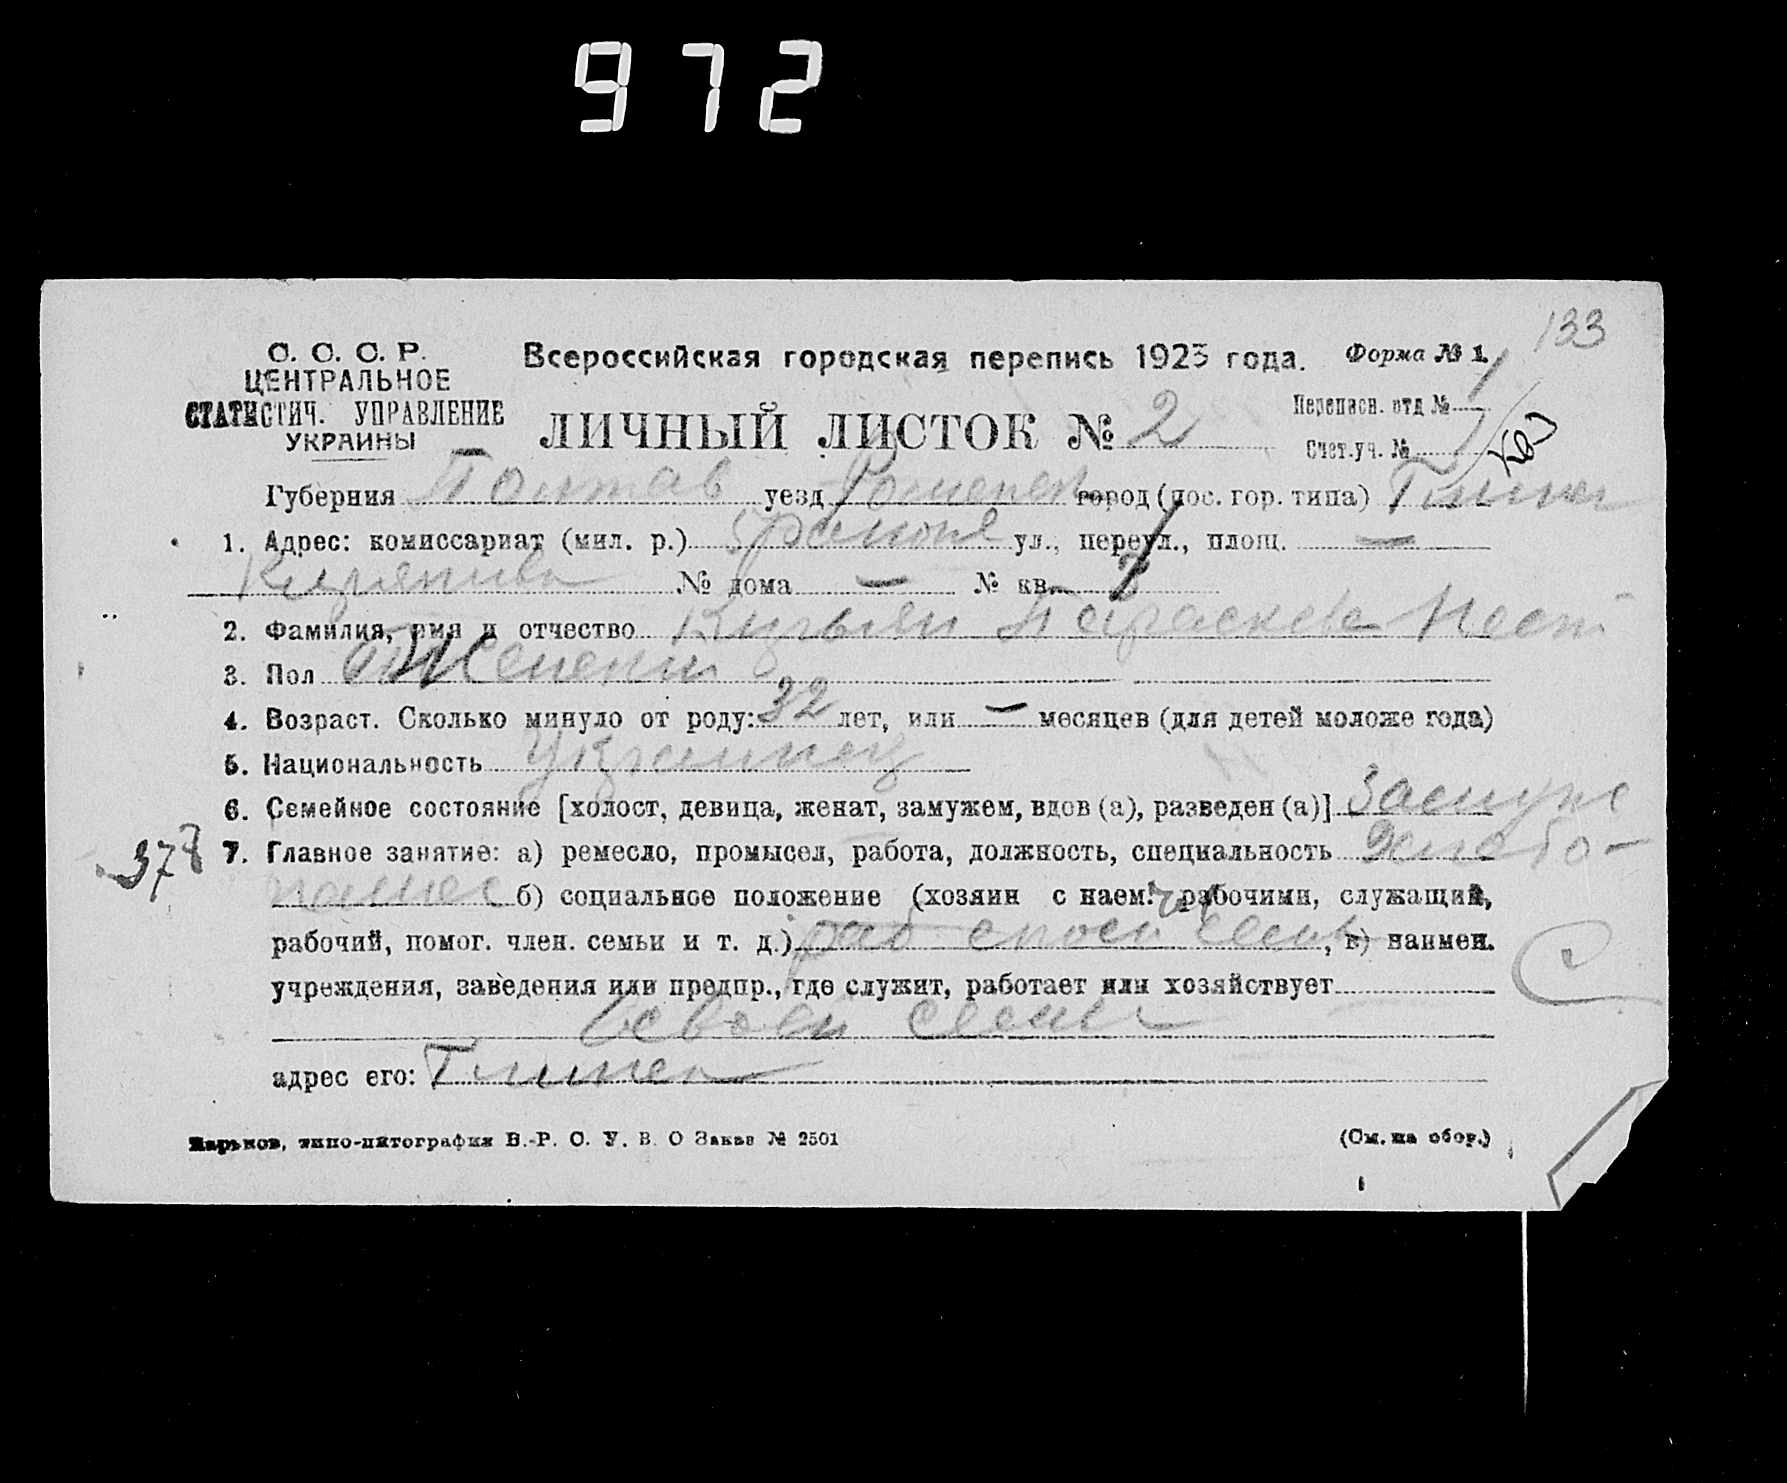 972
133
С. С. С. Р.
ЦЕНТРАЛЬНОЕ
СТАТИСТИЧ. УПРАВЛЕНИЕ
УКРАИНЫ
Всероссийская городская перепись 1923 года.
Форма № 1.
ЛИЧНЫЙ ЛИСТОК № 2
Переписн. отд № 1
Счет.уч. №
Губерния Полтав уезд Роменск город (пос. гор. типа) Глинск
1. Адрес: комиссариат (мил. р.) района ул., переул., площ. —
№ дома — № кв.
2. Фамилия, имя и отчество Параскева Нест
3. Пол Женский
4. Возраст. Сколько минуло от роду: 32 лет, или — месяцев (для детей моложе года)
5. Национальность Украинец
6. Семейное состояние [холост, девица, женат, замужем, вдов (а), разведен (а)] Замуже
378
7. Главное занятие: а) ремесло, промысел, работа, должность, специальность Хлебо-
пашес б) социальное положение (хозяин с наем. рабочими, служащий,
рабочий, помог. член. семьи и т. д.) , в) наимен.
учреждения, заведения или предпр., где служит, работает или хозяйствует
в своей семьи
адрес его: Глинск
Харьков, типо-литография В.-Р. С. У. В. О Заказ № 2501
(См. на обор.)